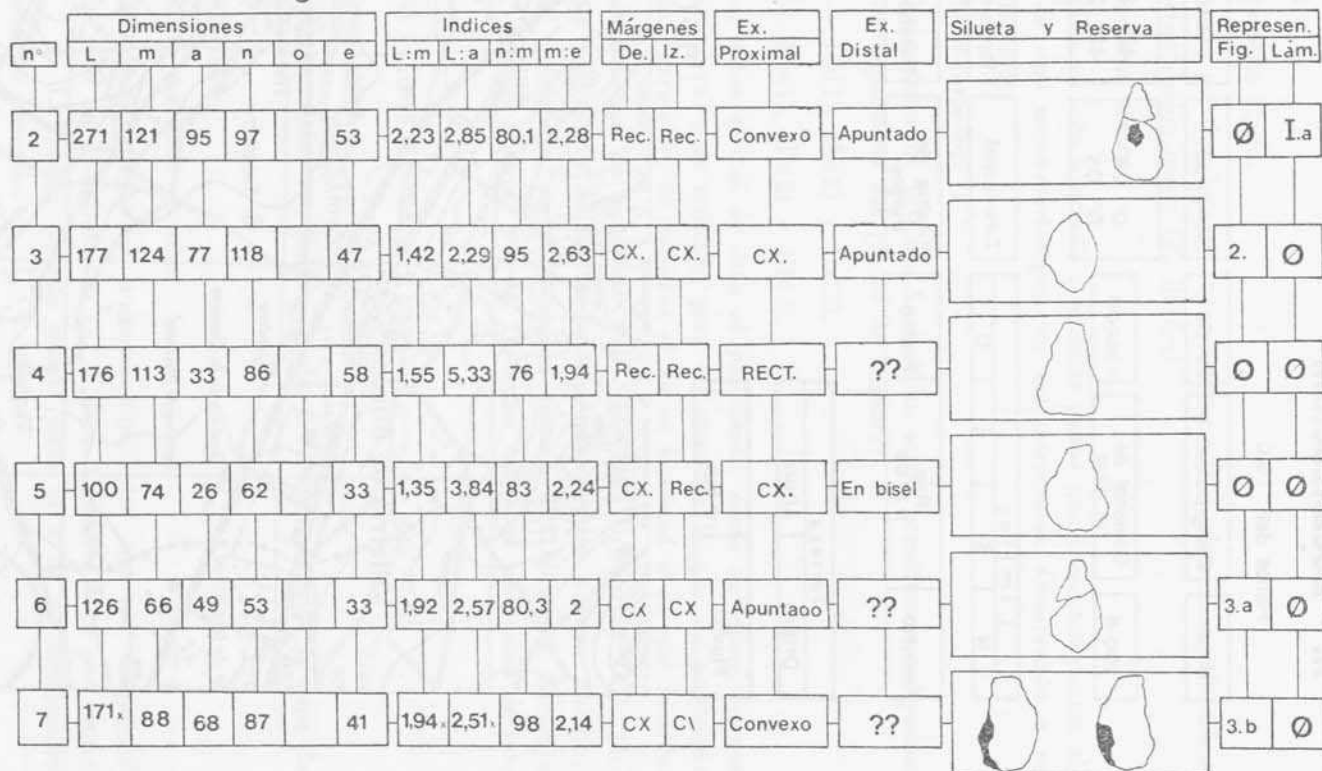 Dimensiones Indices Márgenes Ex. Ex. Silueta y Reserva Represen.
n° L m a n o e L:m L:a n:m m:e De. Iz. Proximal Distal Fig. Lám.
2 271 121 95 97 53 2,23 2,85 80,1 2,28 Rec. Rec. Convexo Apuntado Ø I.a
3 177 124 77 118 47 1,42 2,29 95 2,63 CX. CX. CX. Apuntado 2. Ø
4 176 113 33 86 58 1,55 5,33 76 1,94 Rec. Rec. RECT. ?? Ø Ø
5 100 74 26 62 33 1,35 3,84 83 2,24 CX. Rec. CX. En bisel Ø Ø
6 126 66 49 53 33 1,92 2,57 80,3 2 CX CX Apuntado ?? 3.a Ø
7 171x 88 68 87 41 1,94x 2,51x 98 2,14 CX Convexo ?? 3.b Ø